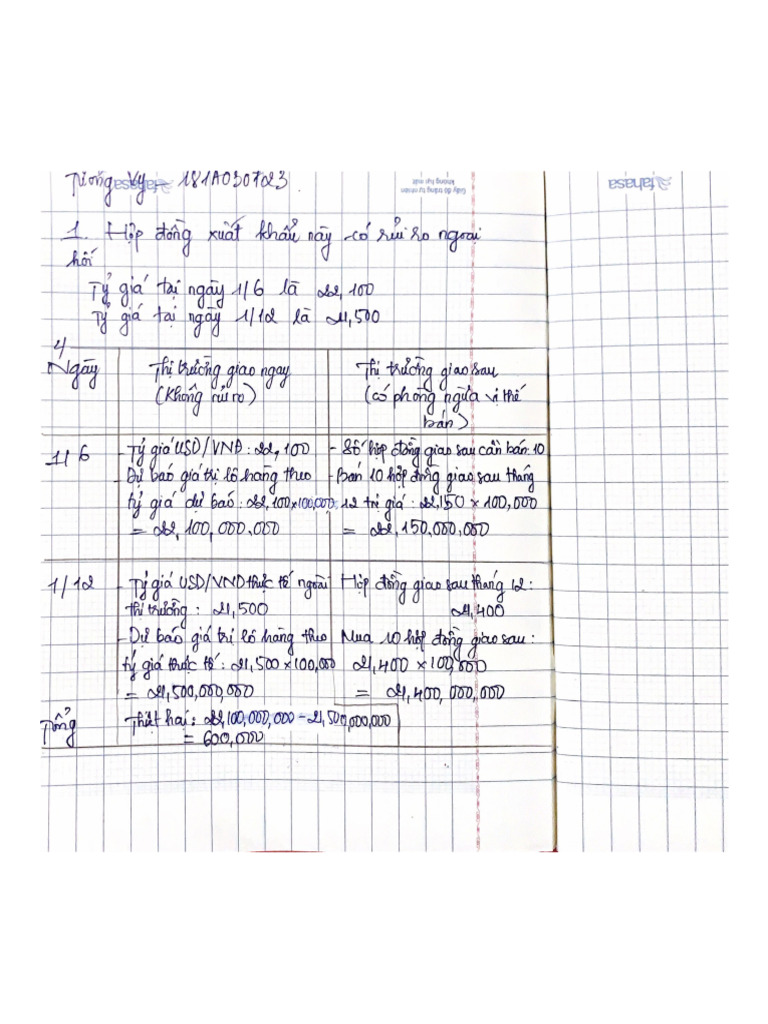 Tường Vy - 181A030723.
fahasa
Giấy độ trắng tự nhiên
không hại mắt
fahasa
1. Hợp đồng xuất khẩu này có rủi ro ngoại
hối
Tỷ giá tại ngày 1/6 là 22,100
Tỷ giá tại ngày 1/12 là 21,500
4
Ngày
Thị trường giao ngay
(Không rủi ro)
Thị trường giao sau
(có phòng ngừa vị thế
bán)
1/6
- Tỷ giá USD/VNĐ: 22,100
- Dự báo giá trị lô hàng theo
tỷ giá dự báo: 22,100x100,000
= 22,100,000,000
- Số hợp đồng giao sau cần bán: 10
- Bán 10 hợp đồng giao sau tháng
12 trị giá: 22,150 x 100,000
= 22,150,000,000
1/12
- Tỷ giá USD/VND thực tế ngoài
thị trường: 21,500
- Dự báo giá trị lô hàng theo
tỷ giá thực tế: 21,500x100,000
= 21,500,000,000
Hợp đồng giao sau tháng 12:
21,400
Mua 10 hợp đồng giao sau:
21,400 x 100,000
= 21,400,000,000
Tổng
Thiệt hại: 22,100,000,000-21,500,000,000
= 600,000